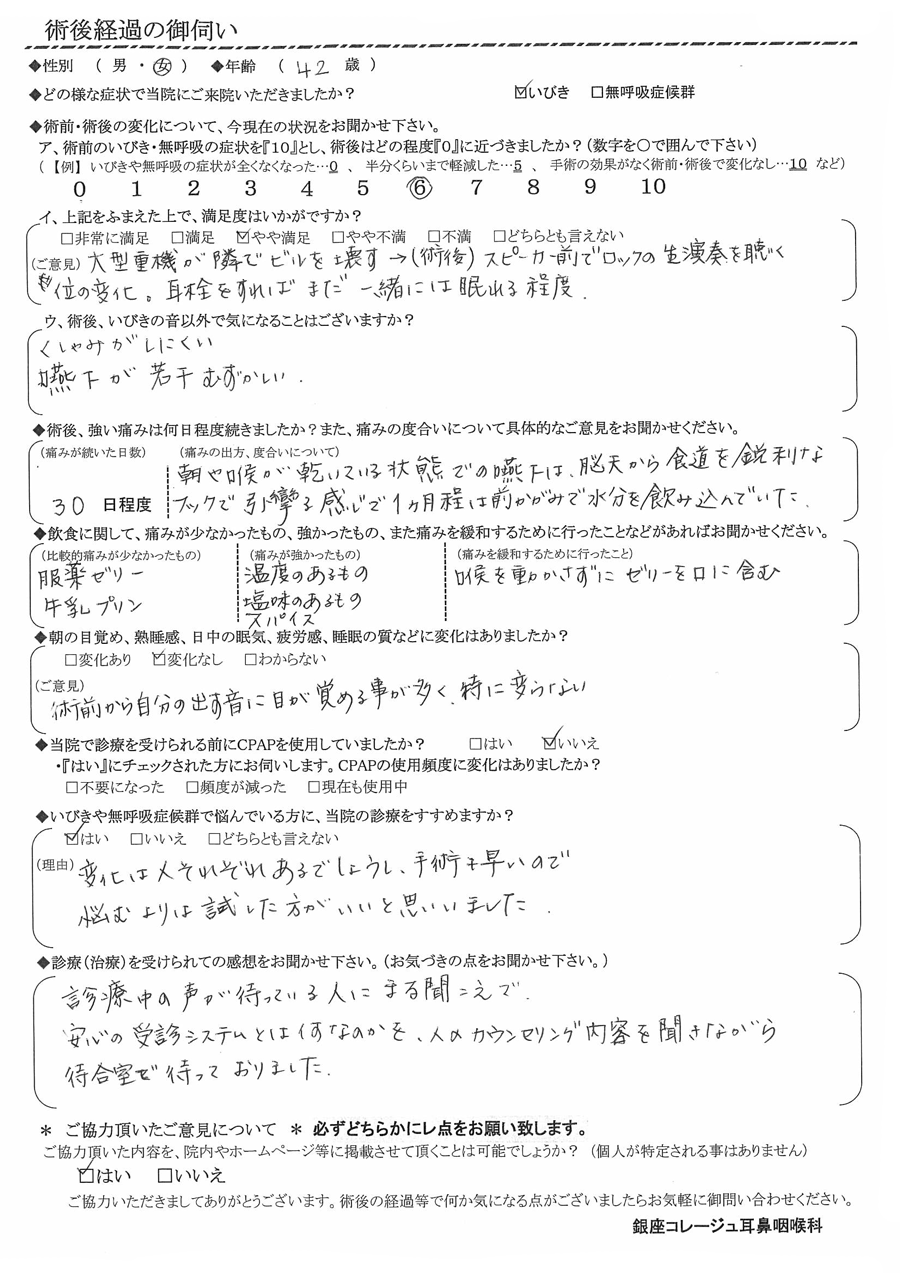 術後経過の御伺い
◆性別 （ 男 ・ 女 ） ◆年齢 （ 42 歳 ）
◆どの様な症状で当院にご来院いただきましたか？ ☑いびき □無呼吸症候群
◆術前・術後の変化について、今現在の状況をお聞かせ下さい。
ア、術前のいびき・無呼吸の症状を『10』とし、術後はどの程度『0』に近づきましたか？（数字を〇で囲んで下さい）
（【例】いびきや無呼吸の症状が全くなくなった…0 、 半分くらいまで軽減した…5 、 手術の効果がなく術前・術後で変化なし…10 など）
0 1 2 3 4 5 ⑥ 7 8 9 10
イ、上記をふまえた上で、満足度はいかがですか？
□非常に満足 □満足 ☑やや満足 □やや不満 □不満 □どちらとも言えない
（ご意見）大型重機が隣でビルを壊す→（術後）スピーカー前でロックの生演奏を聴く
位の変化。耳栓をすればまだ一緒には眠れる程度.
ウ、術後、いびきの音以外で気になることはございますか？
くしゃみがしにくい
嚥下が若干むずかしい.
◆術後、強い痛みは何日程度続きましたか？また、痛みの度合いについて具体的なご意見をお聞かせください。
（痛みが続いた日数） （痛みの出方、度合いについて）
朝や喉が乾いている状態での嚥下は、脳天から食道を鋭利な
30 日程度 フックで引攣る感じで1ヶ月程は前かがみで水分を飲み込んでいた.
◆飲食に関して、痛みが少なかったもの、強かったもの、また痛みを緩和するために行ったことなどがあればお聞かせください。
（比較的痛みが少なかったもの） （痛みが強かったもの） （痛みを緩和するために行ったこと）
服薬ゼリー 温度のあるもの 喉を動かさずにゼリーを口に含む
牛乳プリン 塩味のあるもの
スパイス
◆朝の目覚め、熟睡感、日中の眠気、疲労感、睡眠の質などに変化はありましたか？
□変化あり ☑変化なし □わからない
（ご意見）
術前から自分の出す音に目が覚める事が多く、特に変らない
◆当院で診療を受けられる前にCPAPを使用していましたか？ □はい ☑いいえ
・『はい』にチェックされた方にお伺いします。CPAPの使用頻度に変化はありましたか？
□不要になった □頻度が減った □現在も使用中
◆いびきや無呼吸症候群で悩んでいる方に、当院の診療をすすめますか？
☑はい □いいえ □どちらとも言えない
（理由）変化は人それぞれあるでしょうし、手術も早いので
悩むよりは試した方がいいと思いいました.
◆診療（治療）を受けられての感想をお聞かせ下さい。（お気づきの点をお聞かせ下さい。）
診療中の声が待っている人にまる聞こえで.
安心の受診システムとは何なのかを、人のカウンセリング内容を聞きながら
待合室で待っておりました.
＊ ご協力頂いたご意見について ＊ 必ずどちらかにレ点をお願い致します。
ご協力頂いた内容を、院内やホームページ等に掲載させて頂くことは可能でしょうか？（個人が特定される事はありません）
☑はい □いいえ
ご協力いただきましてありがとうございます。術後の経過等で何か気になる点がございましたらお気軽に御問い合わせください。
銀座コレージュ耳鼻咽喉科